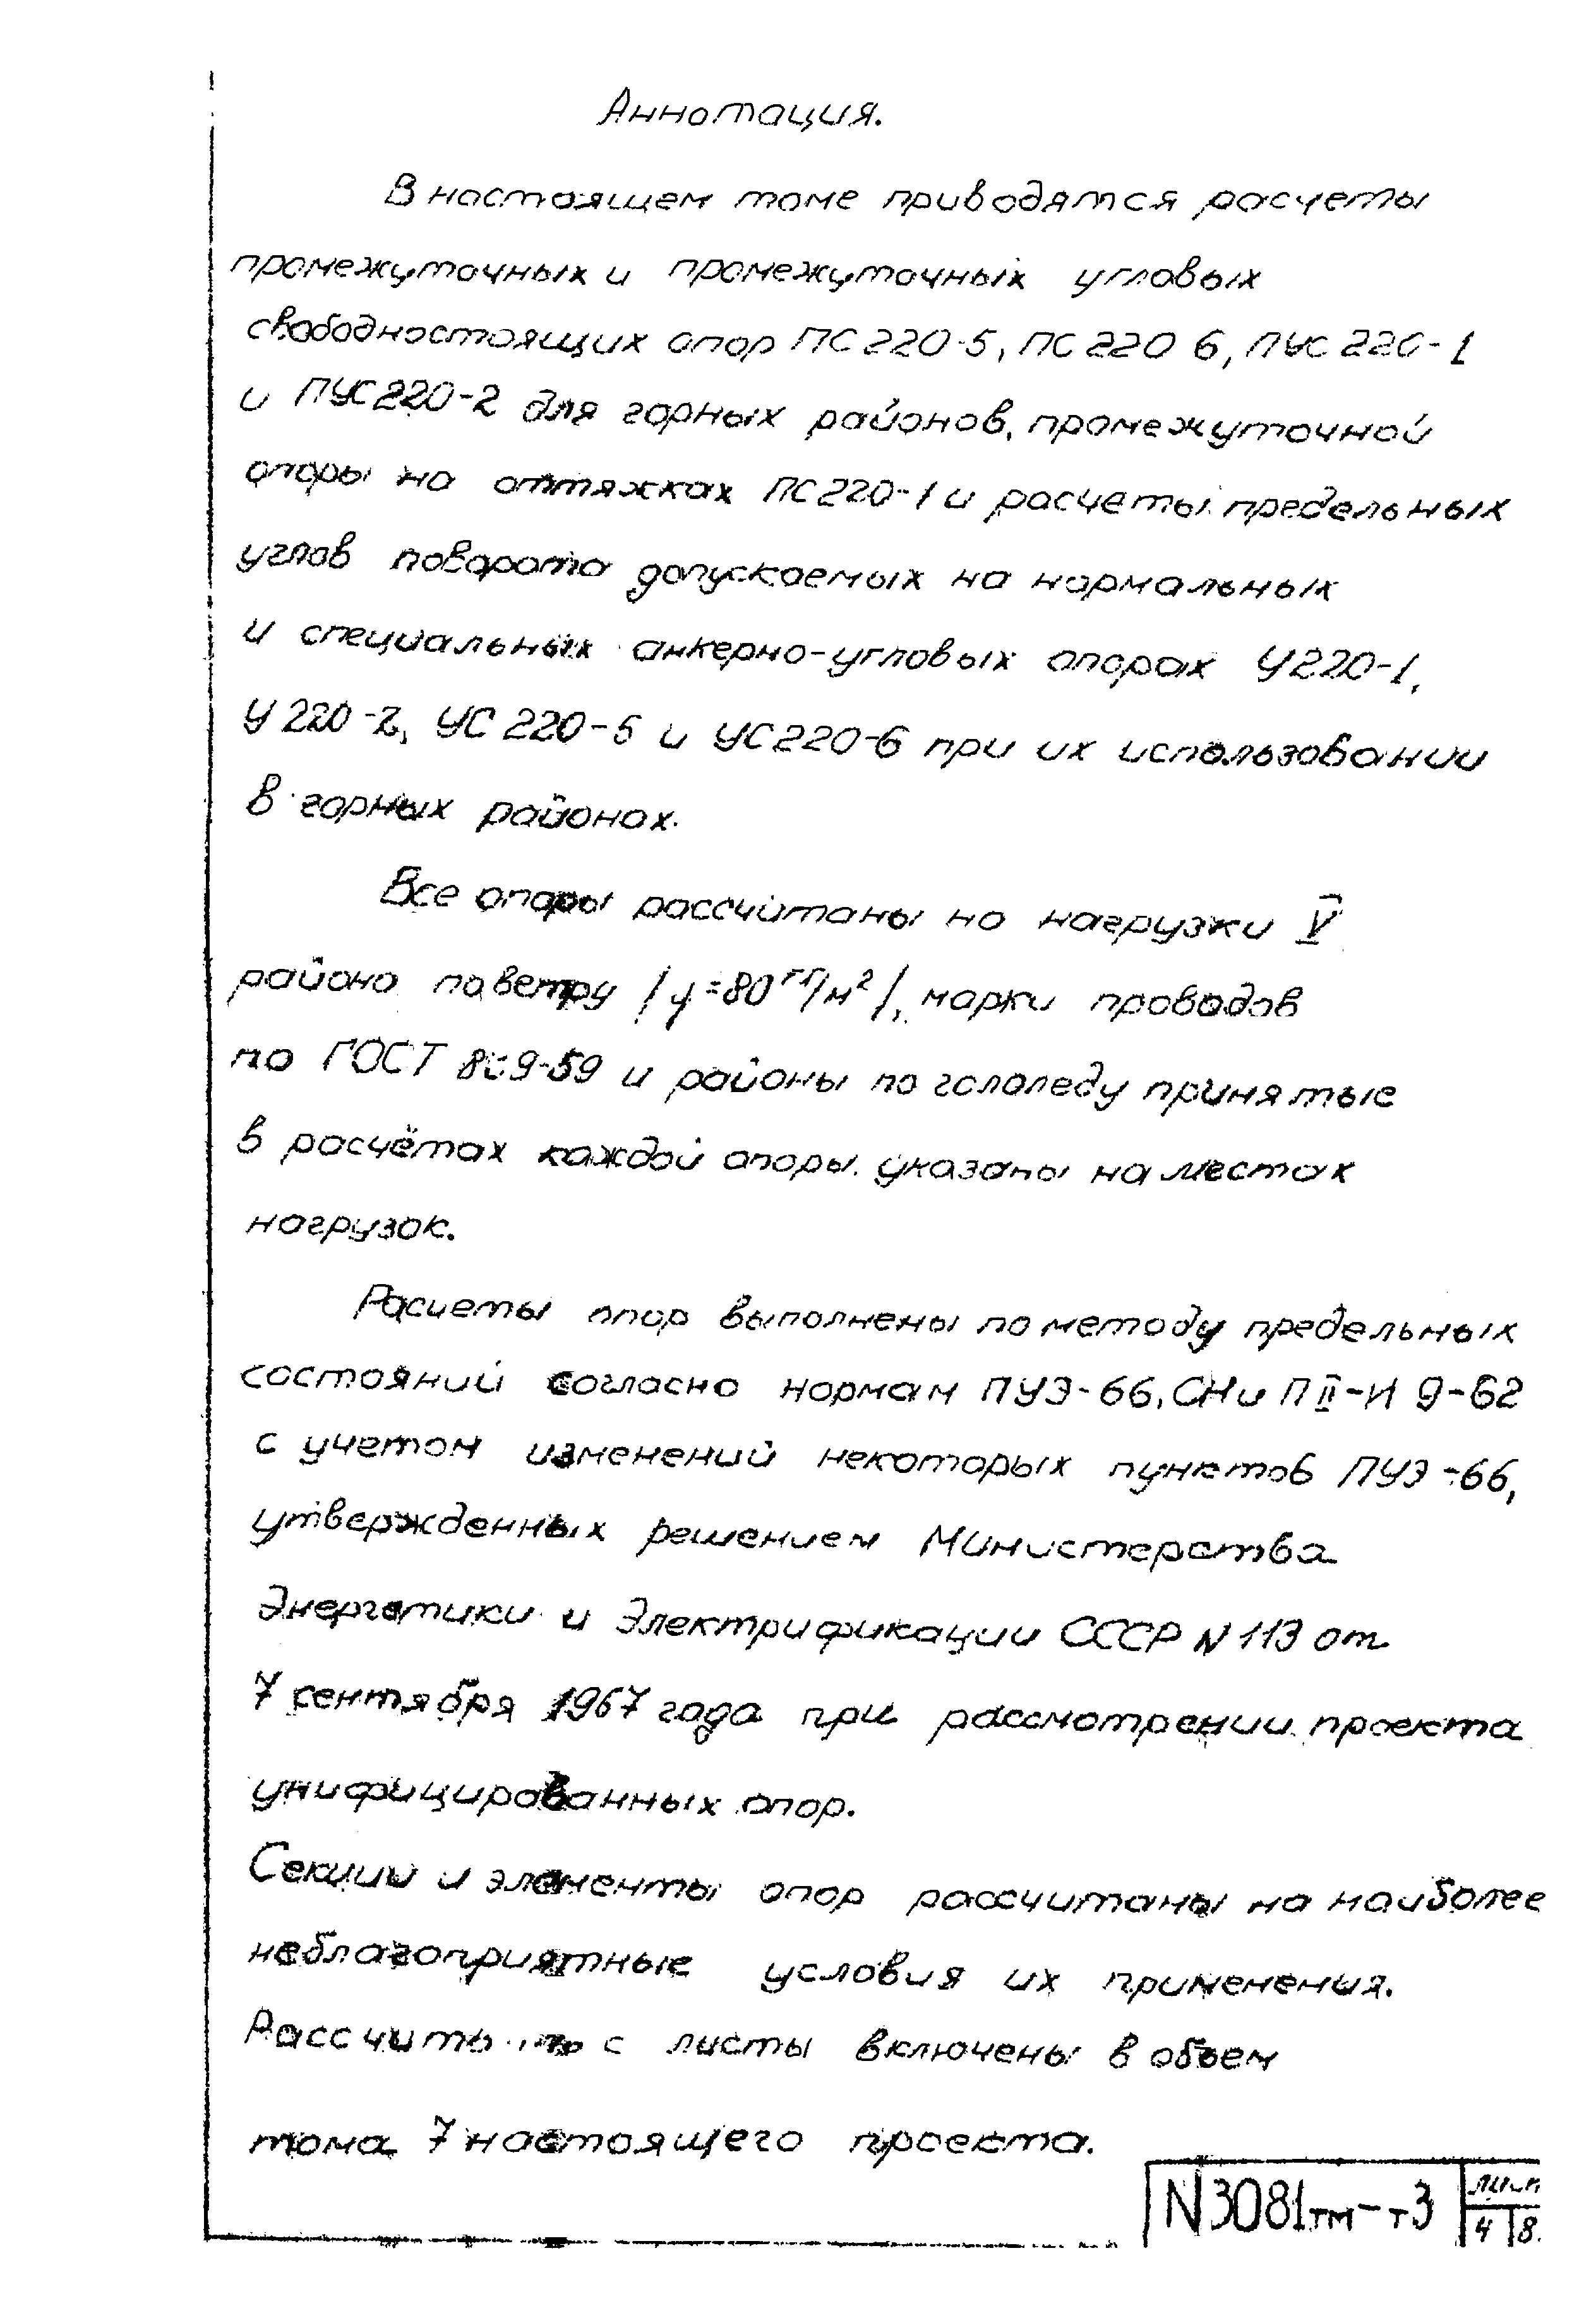 Аннотация.
В настоящем томе приводятся расчеты
промежуточных и промежуточных угловых
свободностоящих опор ПС 220-5, ПС 220 6, ПУС 220-1
и ПУС220-2 для горных районов, промежуточной
опоры на оттяжках ПС220-1 и расчеты предельных
углов поворота допускаемых на нормальных
и специальных анкерно-угловых опорах У220-1,
У 220-2, УС 220-5 и УС220-6 при их использовании
в горных районах.
Все опоры рассчитаны на нагрузки V
района по ветру /q=80 кг/м²/, марки проводов
по ГОСТ 839-59 и районы по гололеду принятые
в расчётах каждой опоры указаны на листах
нагрузок.
Расчеты опор выполнены по методу предельных
состояний согласно нормам ПУЭ-66, СНиП II-И 9-62
с учетом изменений некоторых пунктов ПУЭ-66,
утвержденных решением Министерства
Энергетики и Электрификации СССР N 113 от
7 сентября 1967 года при рассмотрении проекта
унифицированных опор.
Секции и элементы опор рассчитаны на наиболее
неблагоприятные условия их применения.
листы включены в объем
тома 7 настоящего проекта.
N3081тм-т3
лист
4 8